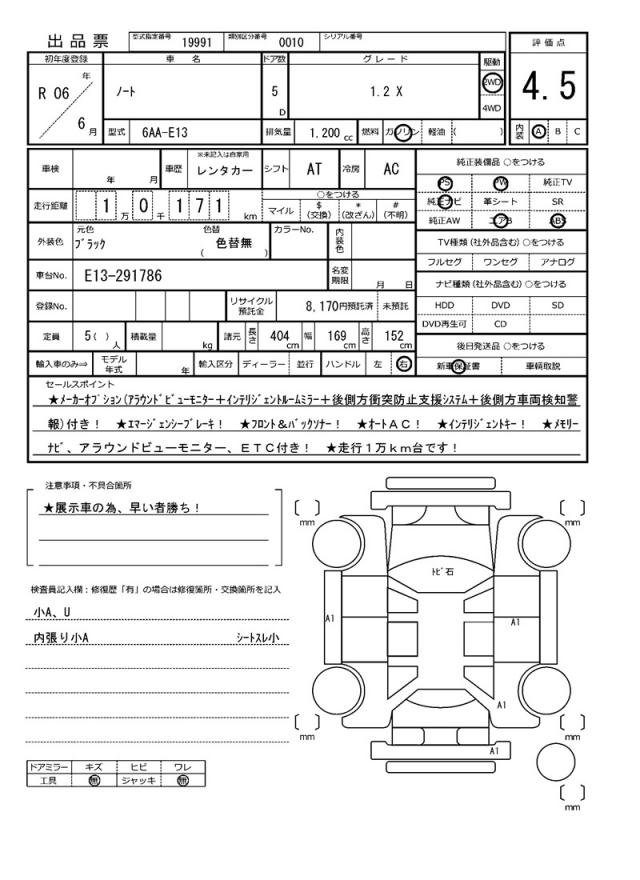 出品票 型式指定番号 19991 類別区分番号 0010 シリアル番号
評価点
4.5
内装 A B C
初年度登録 車名 ドア数 グレード 駆動
R 06 年 6 月 ノート 5 D 1.2 X 2WD
4WD
型式 6AA-E13 排気量 1.200 cc 燃料 ガソリン 軽油 ( )
車検 年 月 車歴 ※未記入は自家用 レンタカー シフト AT 冷房 AC
走行距離 1 万 0 千 1 7 1 km ○をつける
マイル $(交換) *(改ざん) #(不明)
外装色 元色 ブラック 色替 ( 色替無 ) カラーNo. 内装色
車台No. E13-291786 名変期限 月 日
登録No. リサイクル預託金 8,170円預託済 未預託
定員 5( ) 人 積載量 kg 諸元 長さ 404 cm 幅 169 cm 高さ 152 cm
輸入車のみ⇒ モデル年式 年 輸入区分 ディーラー 並行 ハンドル 左 右
純正装備品 ○をつける
PS PW 純正TV
純正ナビ 革シート SR
純正AW エアB ABS
TV種類(社外品含む)○をつける
フルセグ ワンセグ アナログ
ナビ種類(社外品含む)○をつける
HDD DVD SD
DVD再生可 CD
後日発送品 ○をつける
新車保証書 車輌取説
セールスポイント
★メーカーオプション(アラウンドビューモニター+インテリジェントルームミラー+後側方衝突防止支援システム+後側方車両検知警
報)付き! ★エマージェンシーブレーキ! ★フロント&バックソナー! ★オートAC! ★インテリジェントキー! ★メモリー
ナビ、アラウンドビューモニター、ETC付き! ★走行1万km台です!
注意事項・不具合箇所
★展示車の為、早い者勝ち!
検査員記入欄:修復歴「有」の場合は修復箇所・交換箇所を記入
小A、U
内張り小A シートスレ小
ドアミラー キズ ヒビ ワレ
工具 無 ジャッキ 無
mm
mm
トビ石
A1
A1
A1
mm
mm
A1
mm